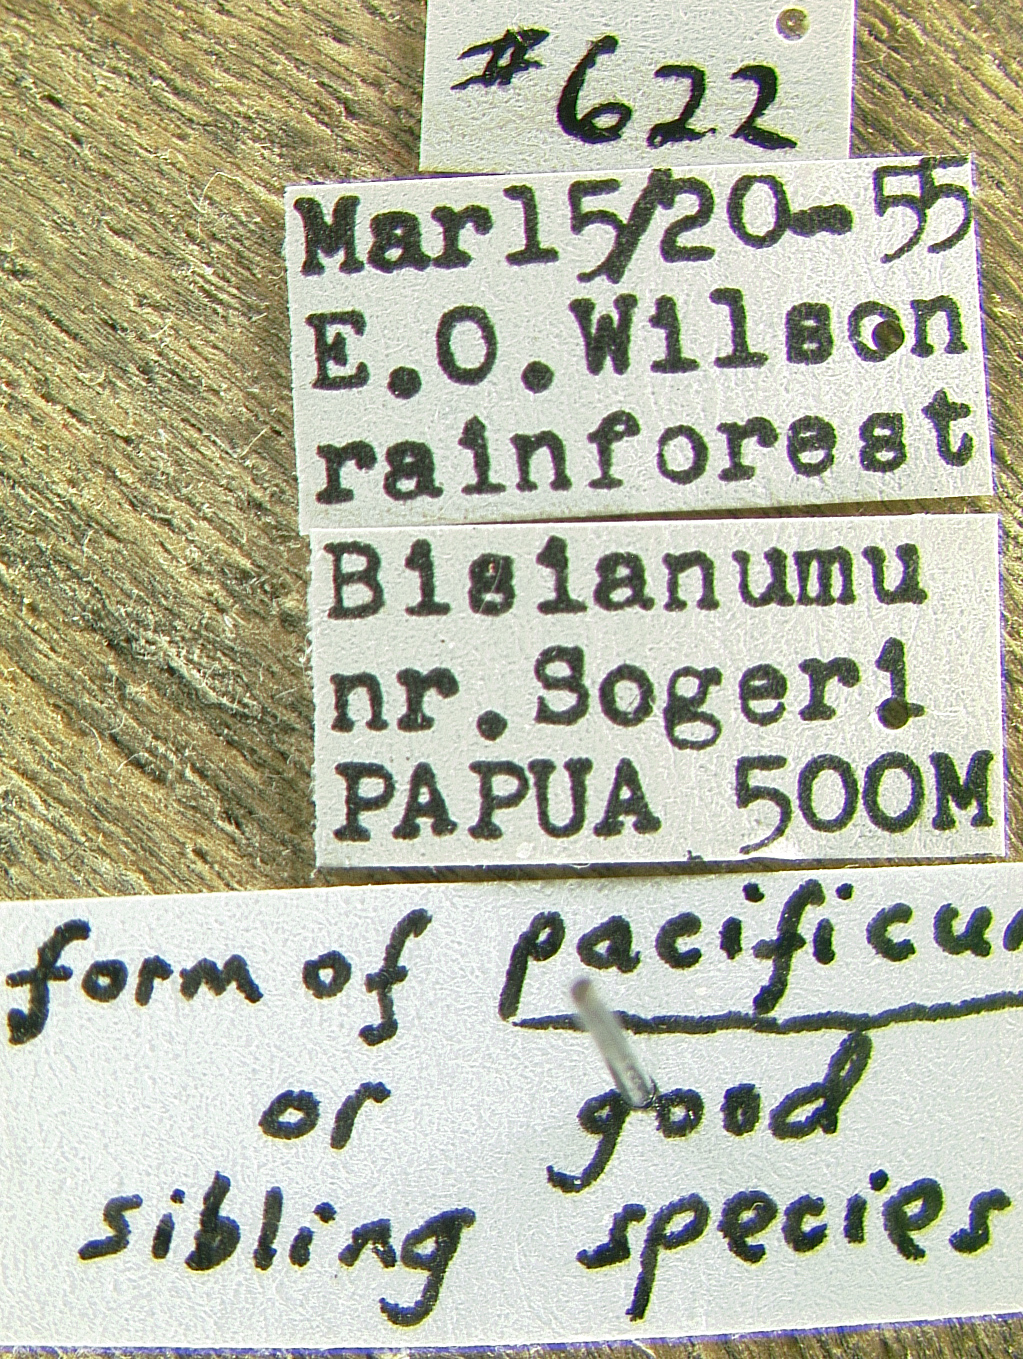 #622
Mar15/20-55
E.O.Wilson
rainforest
Bisianumu
nr.Sogeri
PAPUA 500M
form of pacificu
or good
sibling species